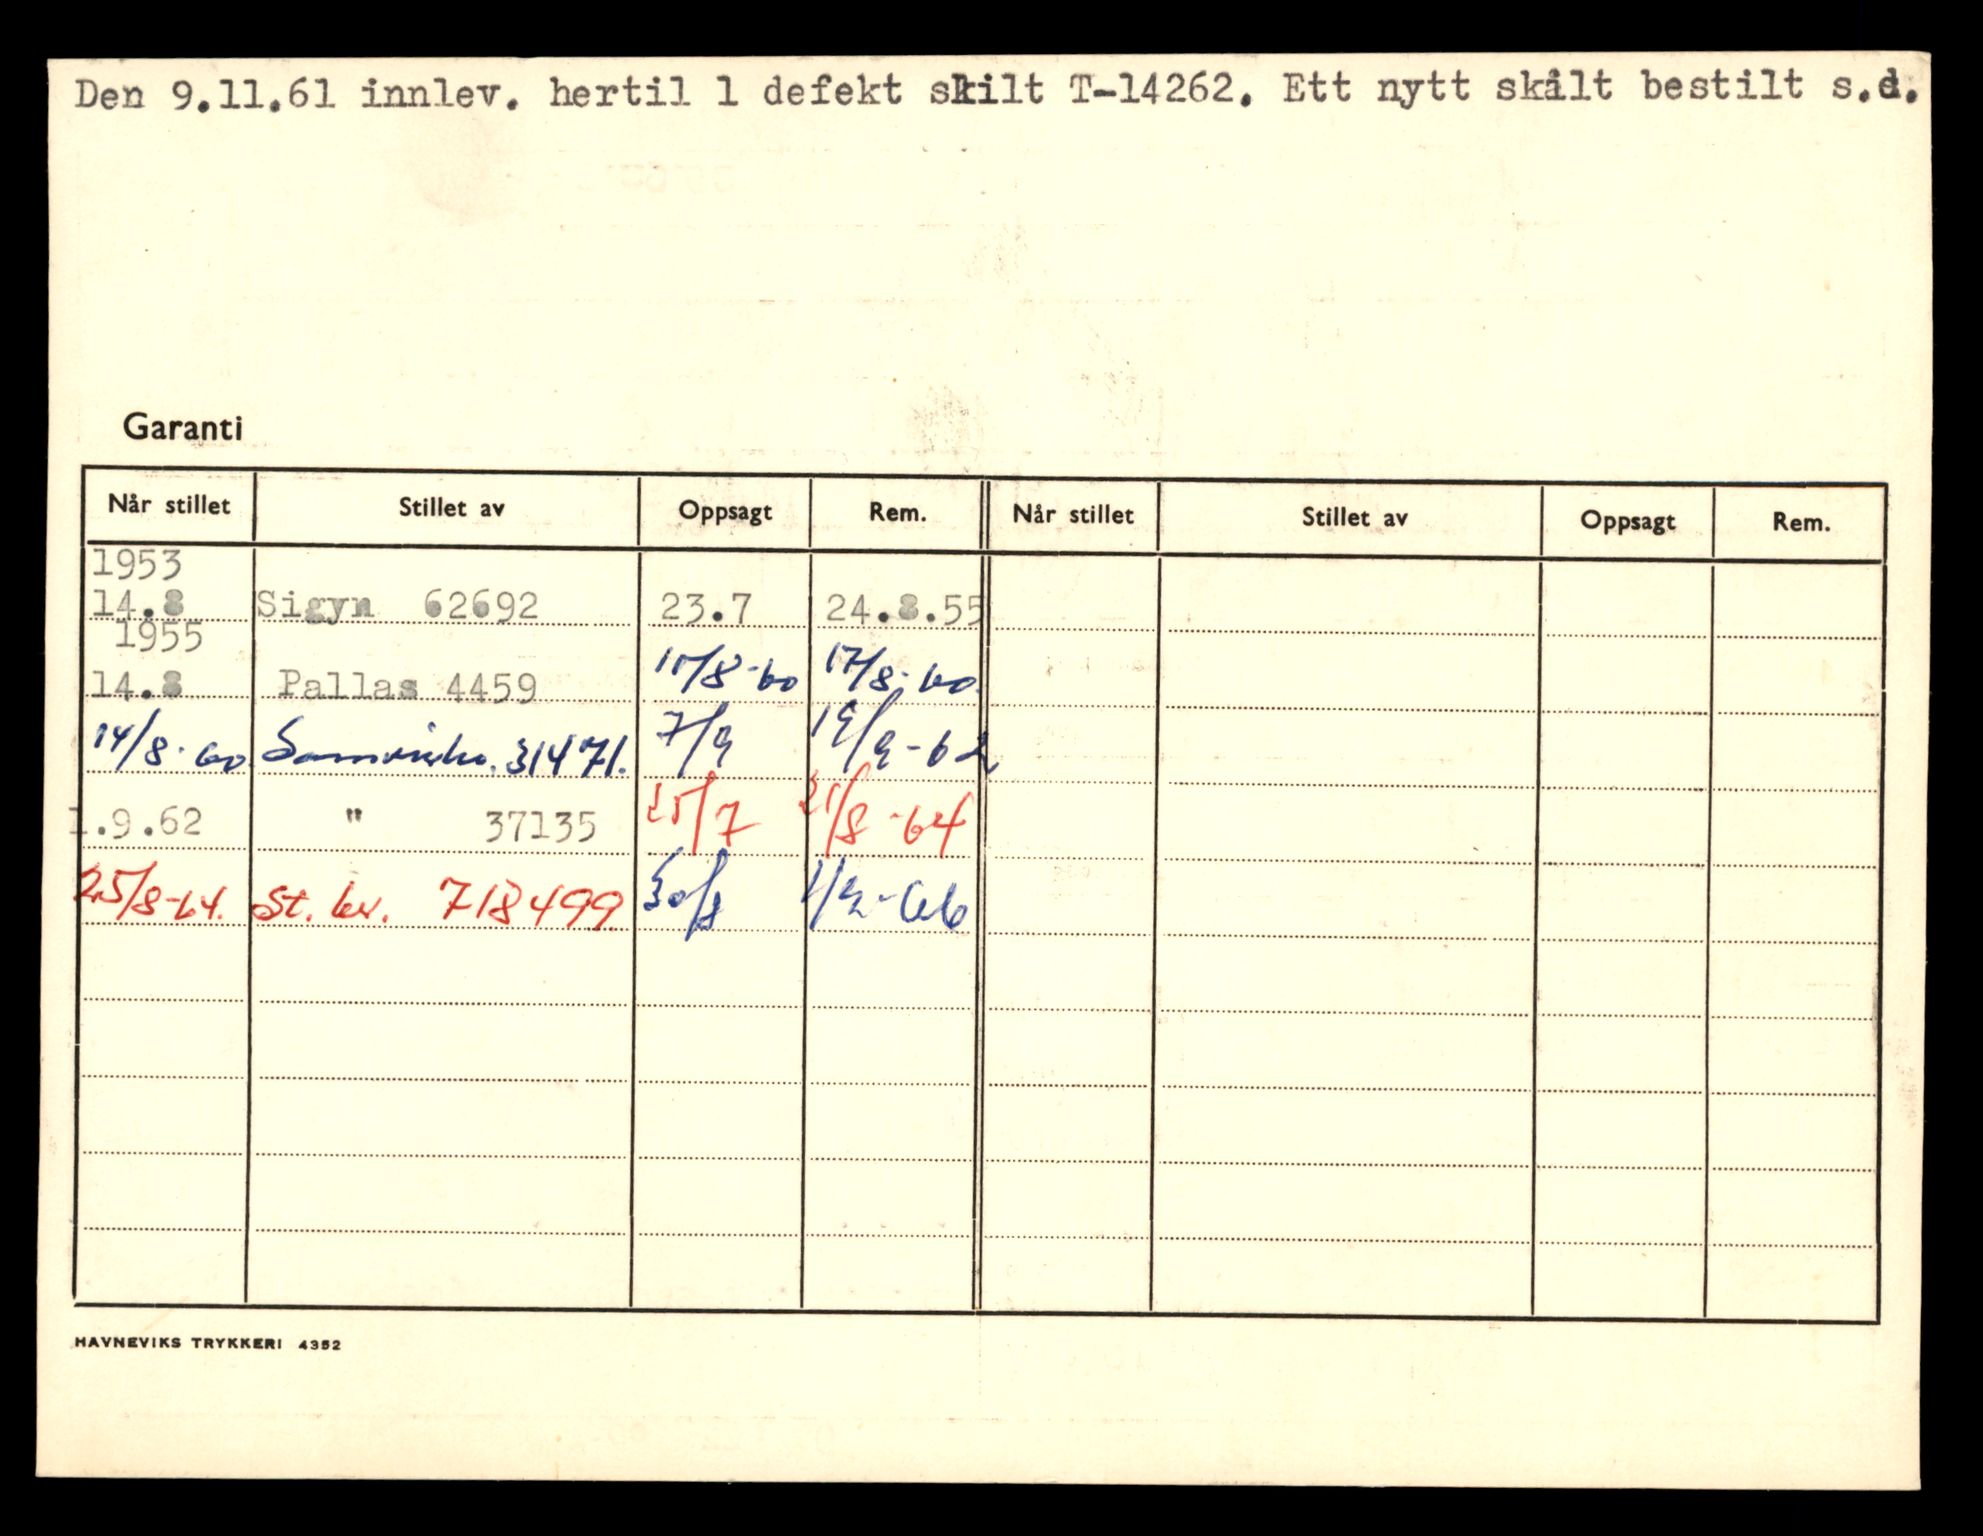 Den 9.11.61 innlev. hertil 1 defekt skilt T-14262. Ett nytt skålt bestilt s.d.
Garanti
Når stillet Stillet av Oppsagt Rem. Når stillet Stillet av Oppsagt Rem.
1953
14.8 Sigyn 62692 23.7 24.8.55
1955
14.8 Pallas 4459 15/8-60 17/8-60
14/8-60 31471. 7/9 19/9-62
1.9.62 " 37135 25/7 21/8-64
25/8-64. St. br. 718499 30/8 1/9-66
HAVNEVIKS TRYKKERI 4352